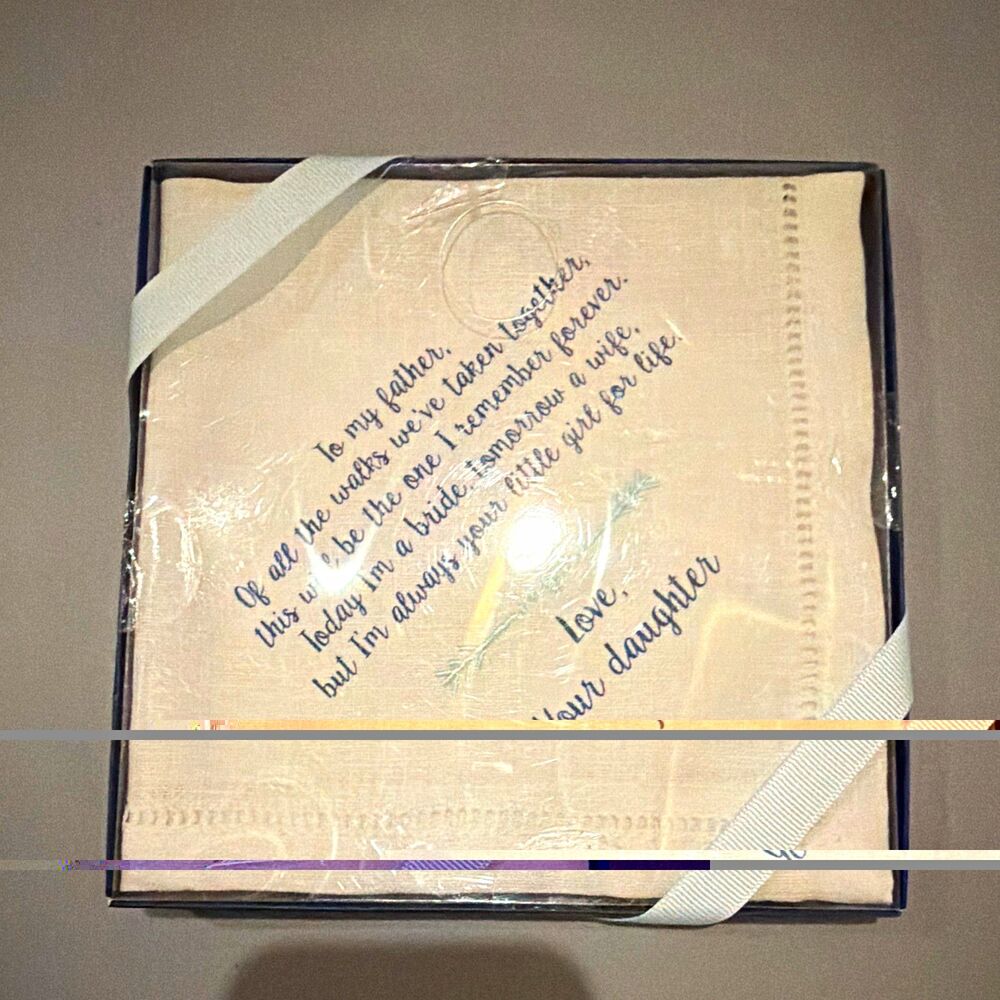 To my father,
Of all the walks we've taken together,
this will be the one I remember forever.
Today I'm a bride, tomorrow a wife,
but I'm always your little girl for life.
Love,
Your daughter